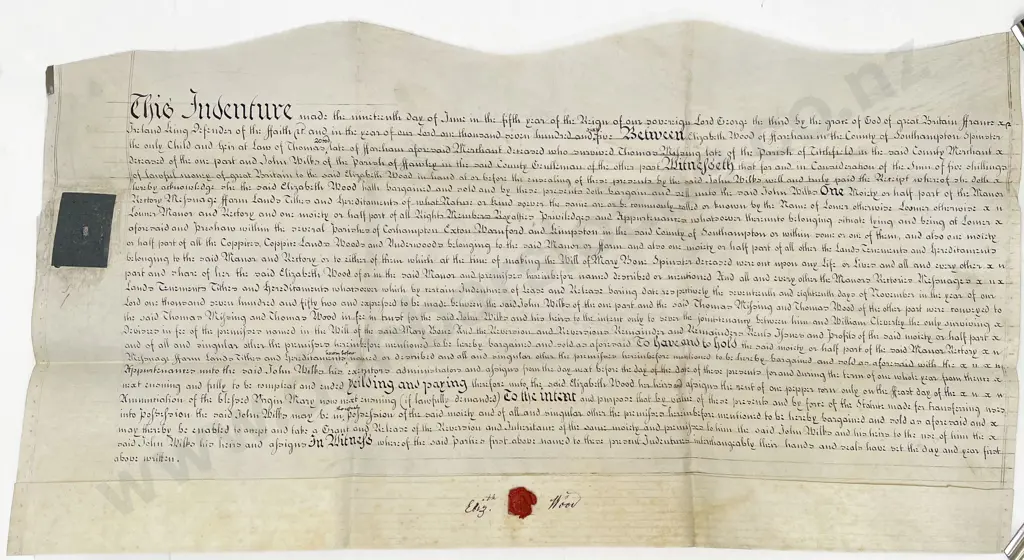 This Indenture made the nineteenth day of June in the fifth year of the Reign of our sovereign Lord George the third by the grace of God of great Britain ffrance x
Ireland King Defender of the ffaith &c and in the year of our Lord one thousand seven hundred and sixty five Between Elizabeth Wood of ffareham in the County of Southampton Spinster
the only Child and Heir at Law of Thomas Wood late of ffareham aforesaid Merchant deceased who survived Thomas Missing late of the Parish of Titchfield in the said County Merchant x
deceased of the one part and John Wilks of the Parish of ffawley in the said County Gentleman of the other part Witnesseth that for and in Consideration of the Sum of five shillings
of lawful money of great Britain to the said Elizabeth Wood in hand at or before the ensealing of these presents by the said John Wilks well and truly paid the Receipt whereof she doth x
hereby acknowledge she the said Elizabeth Wood hath bargained and sold and by these presents doth bargain and sell unto the said John Wilks One Moiety or half part of the Manor
Rectory Messuage ffarm Lands Tithes and Hereditaments of what Nature or kind soever the same are or be commonly called or known by the Name of Lomer otherwise Lomer otherwise x
Lomer Manor and Rectory and one moiety or half part of all Rights Members Royalties Priviledges and Appurtenances whatsoever thereunto belonging situate lying and being at Lomer x
aforesaid and within the several Parishes of Corhampton Exton Warnford and Kimpston in the said County of Southampton or within some or one of them, and also one moiety
or half part of all the Coppices Coppice Lands Woods and Underwoods belonging to the said Manor or ffarm and also one moiety or half part of all other the Lands Tenements and Hereditaments
belonging to the said Manor and Rectory or to either of them which at the time of making the Will of Mary Bone Spinster deceased were out upon any Life or Lives and all and every other x
part and share of her the said Elizabeth Wood of or in the said Manor and premises hereinbefore named described or mentioned And all and every other the Manors Rectories Messuages x
Lands Tenements Tithes and Hereditaments whatsoever which by certain Indentures of Lease and Release baring date respectively the seventeenth and eighteenth days of November in the year of our
Lord one thousand seven hundred and fifty two and expressed to be made between the said John Wilks of the one part and the said Thomas Missing and Thomas Wood of the other part were conveyed to
the said Thomas Missing and Thomas Wood in fee in trust for the said John Wilks and his heirs to the intent only to sever the jointenancy between him and William Cleverly the only surviving x
Devisees in fee of the premises named in the Will of the said Mary Bone And the Reversion and Reversions Remainder and Remainders Rents Issues and Profits of the said moiety or half part x
and of all and singular other the premises hereinbefore mentioned to be hereby bargained and sold as aforesaid To have and to hold the said moiety or half part of the said Manor Rectory x
Messuage ffarm Lands Tithes and Hereditaments named or described and all and singular other the premises hereinbefore mentioned to be hereby bargained and sold as aforesaid with the x
Appurtenances unto the said John Wilks his executors administrators and assigns from the day next before the day of the date of these presents for and during the term of one whole year from thence x
next ensuing and fully to be compleat and ended yeilding and paying therefore unto the said Elizabeth Wood her heirs and assigns the rent of one pepper corn only on the ffeast day of the x
Annunciation of the blessed Virgin Mary now next ensuing (if lawfully demanded) To the intent and purpose that by virtue of these presents and by force of the Statute made for transferring uses
into Possession the said John Wilks may be in the actual possession of the said moiety and of all and singular other the premises hereinbefore mentioned to be hereby bargained and sold as aforesaid and x
may thereby be enabled to accept and take a Grant and Release of the Reversion and Inheritance of the same moiety and premises to him the said John Wilks and his heirs to the use of him the x
said John Wilks his heirs and assigns In Witness whereof the said Parties first above named to these present Indentures interchangeably their hands and seals have set the day and year first
above written.
Eliz.th Wood